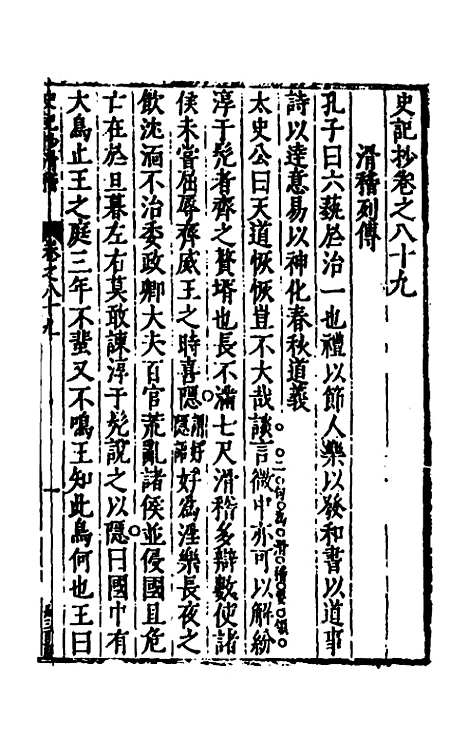 史記抄卷之八十九
滑稽列傳
孔子曰六蓺於治一也禮以節人樂以發和書以道事
詩以達意易以神化春秋道義
太史公曰天道恢恢豈不大哉談言微中亦可以解紛
二句為滑稽張領
淳于髠者齊之贅壻也長不滿七尺滑稽多辯數使諸
侯未嘗屈辱齊威王之時喜隱謂好隱語好爲淫樂長夜之
飲沈湎不治委政卿大夫百官荒亂諸侯並侵國且危
亡在於旦暮左右莫敢諫淳于髠說之以隱曰國中有
大鳥止王之庭三年不蜚又不鳴王知此鳥何也王曰
史記抄滑稽 卷之八十九 一